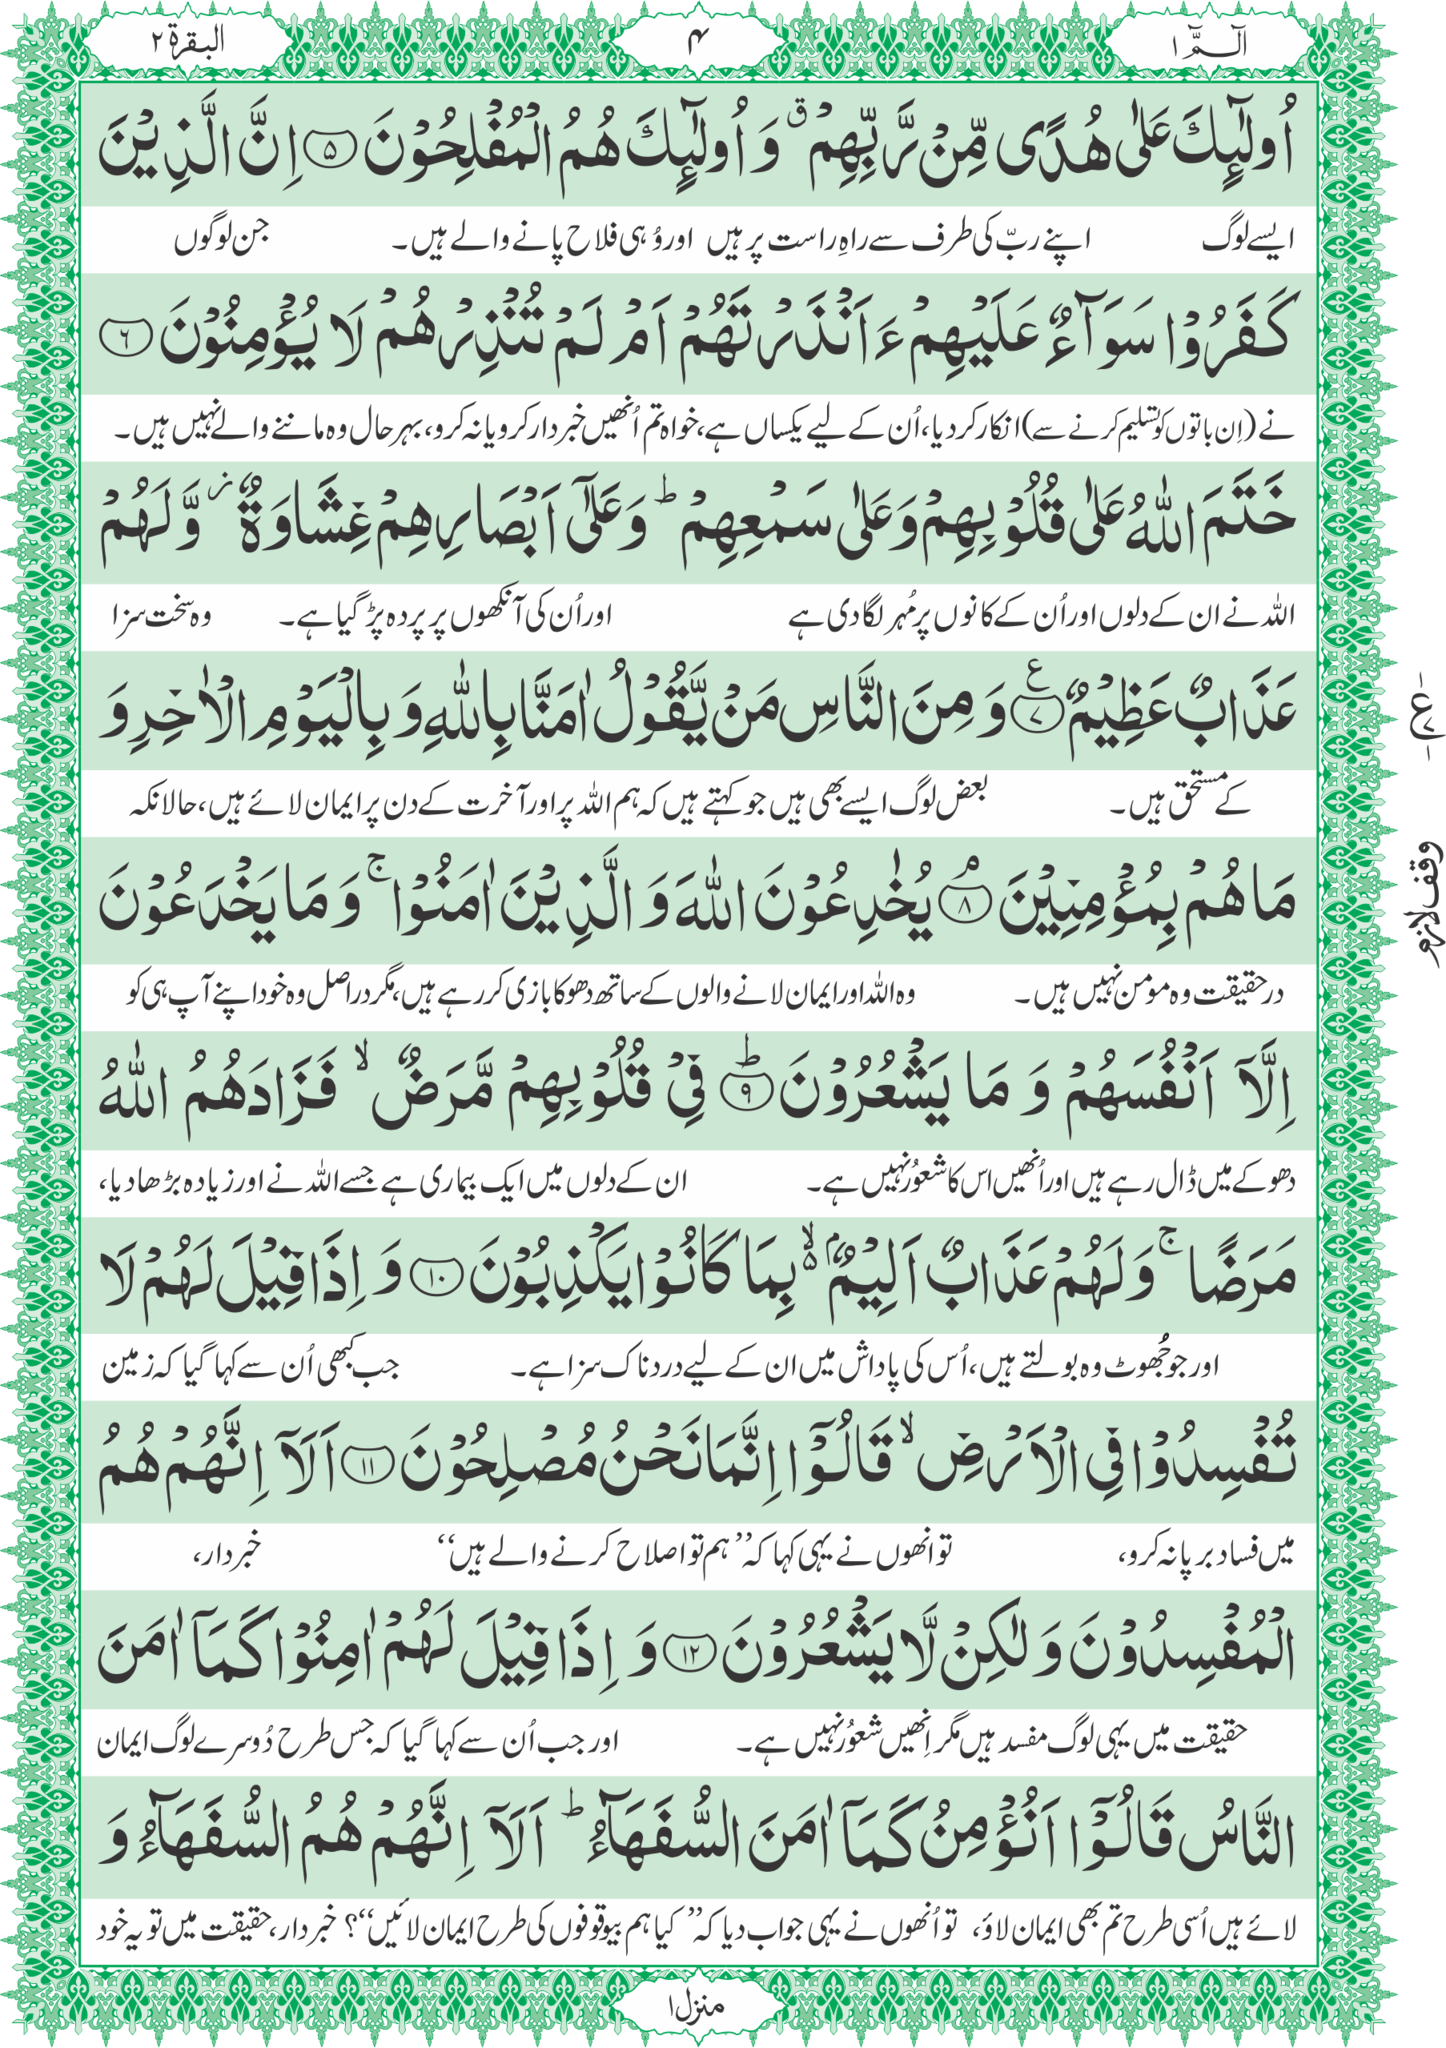 الٓـمّٓ ۱
۴
البقرۃ ۲
اُولٰٓئِكَ عَلٰى هُدًى مِّنْ رَّبِّهِمْ ۗ وَ اُولٰٓئِكَ هُمُ الْمُفْلِحُوْنَ ﴿۵﴾ اِنَّ الَّذِيْنَ
ایسے لوگ اپنے ربّ کی طرف سے راہِ راست پر ہیں اور وُہی فلاح پانے والے ہیں۔ جن لوگوں
كَفَرُوْا سَوَآءٌ عَلَيْهِمْ ءَاَنْذَرْتَهُمْ اَمْ لَمْ تُنْذِرْهُمْ لَا يُؤْمِنُوْنَ ﴿۶﴾
نے (اِن باتوں کو تسلیم کرنے سے) انکار کر دیا، اُن کے لیے یکساں ہے، خواہ تم اُنھیں خبردار کرو یا نہ کرو، بہرحال وہ ماننے والے نہیں ہیں۔
خَتَمَ اللّٰهُ عَلٰى قُلُوْبِهِمْ وَعَلٰى سَمْعِهِمْ ؕ وَعَلٰٓى اَبْصَارِهِمْ غِشَاوَةٌ ز وَّلَهُمْ
اللہ نے ان کے دلوں اور اُن کے کانوں پر مُہر لگا دی ہے اور اُن کی آنکھوں پر پردہ پڑ گیا ہے۔ وہ سخت سزا
عَذَابٌ عَظِيْمٌ ﴿۷﴾ ع وَ مِنَ النَّاسِ مَنْ يَّقُوْلُ اٰمَنَّا بِاللّٰهِ وَ بِالْيَوْمِ الْاٰخِرِ وَ
ع
کے مستحق ہیں۔ بعض لوگ ایسے بھی ہیں جو کہتے ہیں کہ ہم اللہ پر اور آخرت کے دن پر ایمان لائے ہیں، حالانکہ
مَا هُمْ بِمُؤْمِنِيْنَ ﴿۸﴾ ۘ يُخٰدِعُوْنَ اللّٰهَ وَ الَّذِيْنَ اٰمَنُوْا ۚ وَ مَا يَخْدَعُوْنَ
وقف لازم
درحقیقت وہ مومن نہیں ہیں۔ وہ اللہ اور ایمان لانے والوں کے ساتھ دھوکا بازی کر رہے ہیں، مگر دراصل وہ خود اپنے آپ ہی کو
اِلَّآ اَنْفُسَهُمْ وَ مَا يَشْعُرُوْنَ ﴿۹﴾ ؕ فِيْ قُلُوْبِهِمْ مَّرَضٌ ۙ فَزَادَهُمُ اللّٰهُ
دھوکے میں ڈال رہے ہیں اور اُنھیں اس کا شعوُر نہیں ہے۔ ان کے دلوں میں ایک بیماری ہے جسے اللہ نے اور زیادہ بڑھا دیا،
مَرَضًا ۚ وَ لَهُمْ عَذَابٌ اَلِيْمٌۢ ۙ۬ بِمَا كَانُوْا يَكْذِبُوْنَ ﴿۱۰﴾ وَ اِذَا قِيْلَ لَهُمْ لَا
اور جو جُھوٹ وہ بولتے ہیں، اُس کی پاداش میں ان کے لیے دردناک سزا ہے۔ جب کبھی اُن سے کہا گیا کہ زمین
تُفْسِدُوْا فِي الْاَرْضِ ۙ قَالُوْٓا اِنَّمَا نَحْنُ مُصْلِحُوْنَ ﴿۱۱﴾ اَلَآ اِنَّهُمْ هُمُ
میں فساد برپا نہ کرو، تو انھوں نے یہی کہا کہ ”ہم تو اصلاح کرنے والے ہیں“ خبردار،
الْمُفْسِدُوْنَ وَ لٰكِنْ لَّا يَشْعُرُوْنَ ﴿۱۲﴾ وَ اِذَا قِيْلَ لَهُمْ اٰمِنُوْا كَمَآ اٰمَنَ
حقیقت میں یہی لوگ مفسد ہیں مگر اِنھیں شعوُر نہیں ہے۔ اور جب اُن سے کہا گیا کہ جس طرح دُوسرے لوگ ایمان
النَّاسُ قَالُوْٓا اَنُؤْمِنُ كَمَآ اٰمَنَ السُّفَهَآءُ ؕ اَلَآ اِنَّهُمْ هُمُ السُّفَهَآءُ وَ
لائے ہیں اُسی طرح تم بھی ایمان لاؤ، تو اُنھوں نے یہی جواب دیا کہ ”کیا ہم بیوقوفوں کی طرح ایمان لائیں“؟ خبردار، حقیقت میں تو یہ خود
منزل ۱